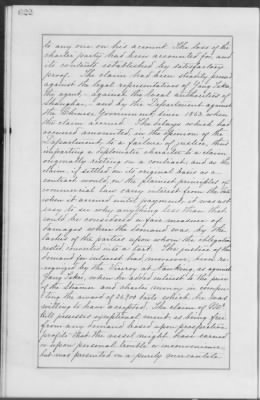 622
to any one on his account. The loss of the
charter party had been accounted for, and
its contents established by satisfactory
proof. The claim had been steadily pressed
against the legal representatives of Yang Taki,
the agent, against the local authorities of
Shanghai, and by the Department against
the Chinese Government since 1863 when
the claim accrued. The delays which had
occurred amounted in the opinion of the
Department to a failure of justice, thus
imparting a diplomatic character to a claim
originally resting on a contract; and as the
claim, if settled on its original basis as a
contract would, on the plainest principles of
commercial law carry interest from the time
when it accrued until payment, it was not
easy to see why anything less than that
could be considered a fair measure of
damages when the demand was, by the
laches of the parties upon whom the obligation
rested, converted into a tort. The justice of the
demand for interest had, moreover, been re-
cognized by the Viceroy at Nanking, as against
Yang Taki, when he added interest to the price
of the Steamer and charter money in compu-
ting the award of which he was
willing to have accepted. The claim of Mr
Hill possess exceptional merit as being free
from any demand based upon prospective
profits that the vessel might have earned
or upon personal trouble or inconvenience,
but was presented on a purely mercantile